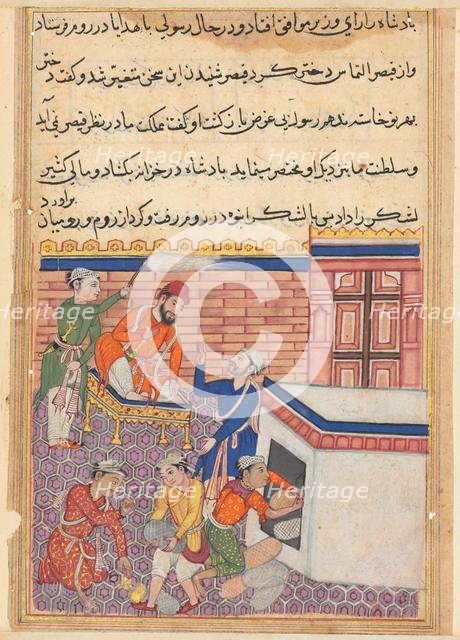 بادشاه را رای وزیر موافق افتاد و در حال رسولی با هدایا در روم فرستاد
و از قیصر التماس دختر کرد قیصر شنیدن این سخن متغیر شد و گفت دختر
بهر نوخاسته ندهم رسول بی غرض باز گشت و گفت مملکت ما در نظر قیصر نمی آید
و سلطنت ما بنزدیک او مختصر مینماید بادشاه در خزاین بکشاد و مالی کثیر
لشکر را داد پس با لشکر انبوه در روم رفت و کرد از روم و رومیان براورد
Heritage Heritage Heritage
Heritage Heritage
Heritage Heritage Heritage